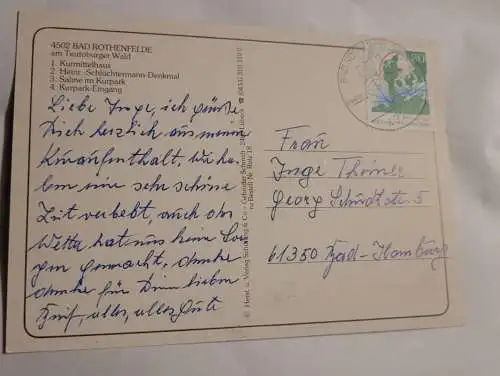 4502 BAD ROTHENFELDE
am Teutoburger Wald
1. Kurmittelhaus
2. Heinr.-Schlüchtermann-Denkmal
3. Saline im Kurpark
4. Kurpark-Eingang
Liebe Inge, ich grüße
Dich herzlich aus meinem
Kuraufenthalt, wir ha-
ben eine sehr schöne
Zeit verlebt, auch das
Wetter hat uns keine Sor-
gen gemacht, danke
danke für Deinen lieben
Brief, alles, alles Gute
© Herst. u. Verlag Schöning & Co. + Gebrüder Schmidt
BAD
80
Frau
Inge
Georg 5
61350 Bad-Homburg